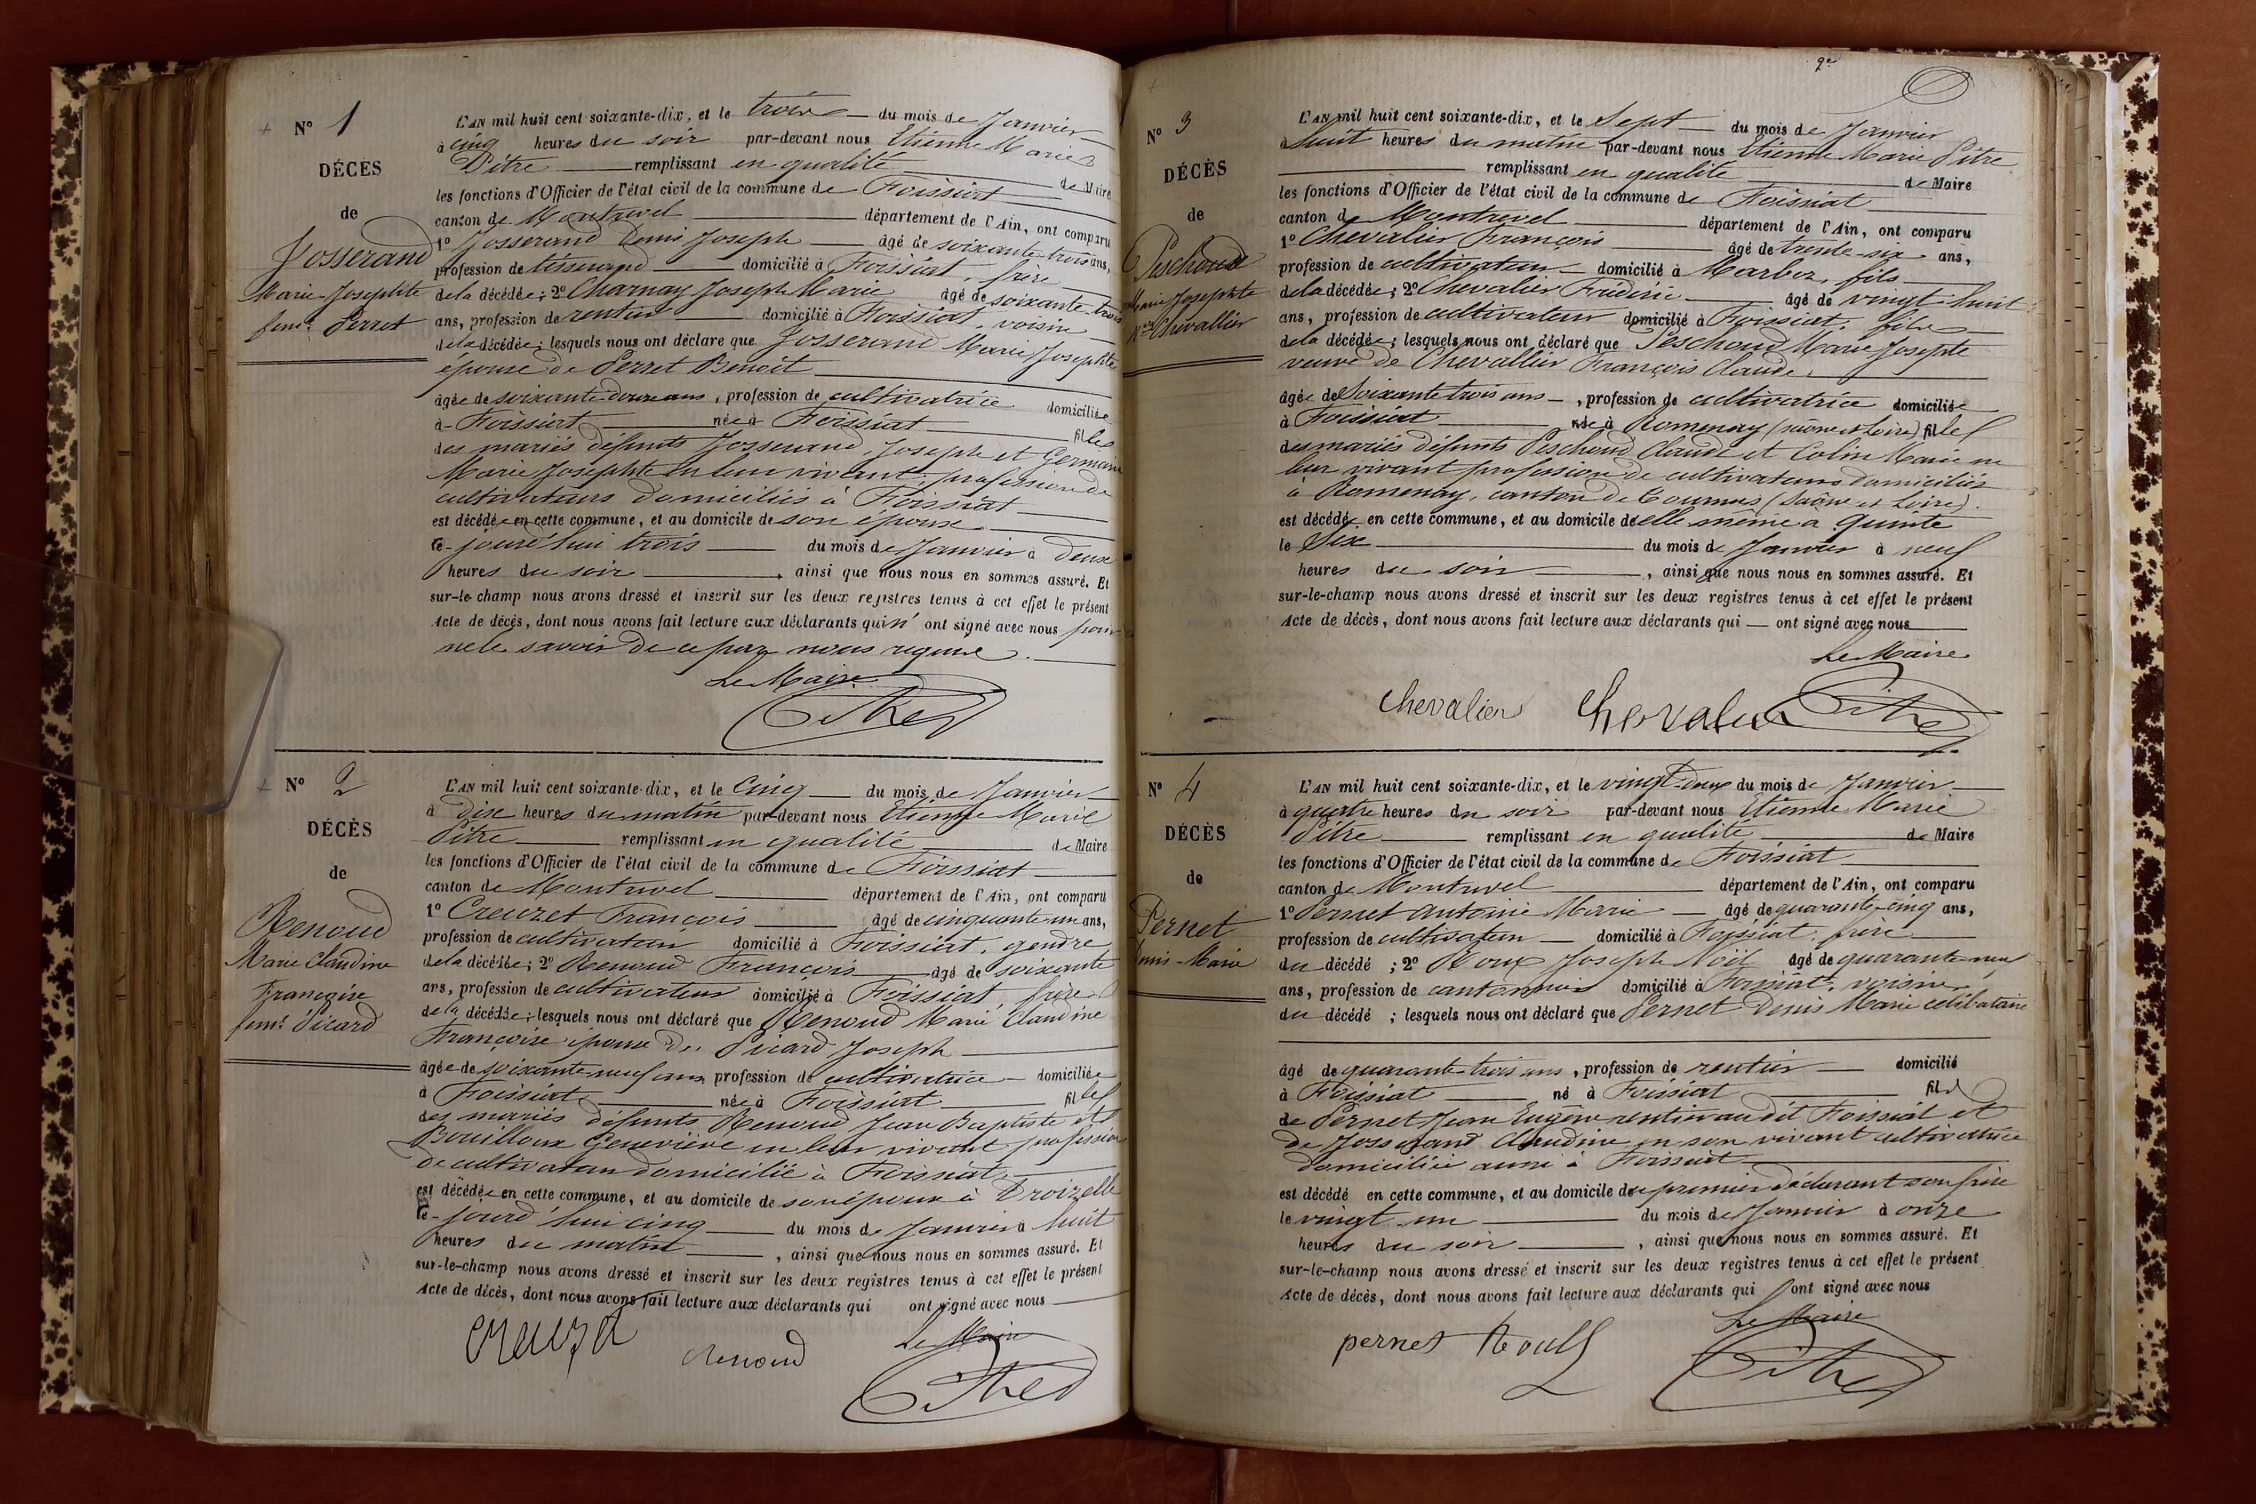 N° 1
DÉCÈS
de
Josserand
Marie-Josephte
femme Perret
L'AN mil huit cent soixante-dix, et le trois du mois de Janvier
à cinq heures du soir par-devant nous Etienne Marie
Pitre remplissant en qualité de Maire
les fonctions d'Officier de l'état civil de la commune de Foissiat
canton de Montrevel département de l'Ain, ont comparu
1° Josserand Denis Joseph âgé de soixante trois ans,
profession de tisserand domicilié à Foissiat, frère
de la décédée; 2° Charnay Joseph Marie âgé de soixante-trois
ans, profession de rentier domicilié à Foissiat, voisin
de la décédée; lesquels nous ont déclaré que Josserand Marie Josephte
épouse de Perret Benoit
âgée de soixante-douze ans, profession de cultivatrice domiciliée
à Foissiat née à Foissiat fille
des mariés défunts Josserand Joseph et Germain
Marie Josephte en leur vivant profession de
cultivateurs domiciliés à Foissiat
est décédée en cette commune, et au domicile de son époux
ce jourd'hui trois du mois de Janvier à deux
heures du soir, ainsi que nous nous en sommes assuré. Et
sur-le-champ nous avons dressé et inscrit sur les deux registres tenus à cet effet le présent
Acte de décès, dont nous avons fait lecture aux déclarants qui n' ont signé avec nous pour
ne le savoir de ce par nous requis.
Le Maire
Pitre
N° 2
DÉCÈS
de
Renoud
Marie Claudine
Françoise
femme Picard
L'AN mil huit cent soixante-dix, et le cinq du mois de Janvier
à dix heures du matin par-devant nous Etienne Marie
Pitre remplissant en qualité de Maire
les fonctions d'Officier de l'état civil de la commune de Foissiat
canton de Montrevel département de l'Ain, ont comparu
1° Creuzet François âgé de cinquante-un ans,
profession de cultivateur domicilié à Foissiat, gendre
de la décédée; 2° Renoud François âgé de soixante
ans, profession de cultivateur domicilié à Foissiat, frère
de la décédée; lesquels nous ont déclaré que Renoud Marie Claudine
Françoise épouse de Picard Joseph
âgée de soixante-neuf ans profession de cultivatrice domiciliée
à Foissiat née à Foissiat fille
des mariés défunts Renoud Jean Baptiste et
Bouilloux Geneviève en leur vivant profession
de cultivateur domicilié à Foissiat
est décédée en cette commune, et au domicile de son époux à
ce jourd'hui cinq du mois de Janvier à huit
heures du matin, ainsi que nous nous en sommes assuré. Et
sur-le-champ nous avons dressé et inscrit sur les deux registres tenus à cet effet le présent
Acte de décès, dont nous avons fait lecture aux déclarants qui ont signé avec nous
Le Maire
creuzet renoud Pitre
2e
N° 3
DÉCÈS
de
Peschoud
Marie Josephte
Ve Chevallier
L'AN mil huit cent soixante-dix, et le Sept du mois de Janvier
à huit heures du matin par-devant nous Etienne Marie Pitre
remplissant en qualité de Maire
les fonctions d'Officier de l'état civil de la commune de Foissiat
canton de Montrevel département de l'Ain, ont comparu
1° Chevalier François âgé de trente-six ans,
profession de cultivateur domicilié à Marboz, fils
de la décédée; 2° Chevalier Frédéric âgé de vingt-huit
ans, profession de cultivateur domicilié à Foissiat, fils
de la décédée; lesquels nous ont déclaré que Peschoud Marie Josephte
veuve de Chevallier François Claude,
âgée de Soixante trois ans, profession de cultivatrice domiciliée
à Foissiat née à Romenay (Saône et Loire) fille
des mariés défunts Peschoud Claude et Colin Marie en
leur vivant profession de cultivateurs domiciliés
à Romenay, canton de Tournus (Saône et Loire).
est décédée en cette commune, et au domicile d'elle même à
le Six du mois de Janvier à neuf
heures du soir, ainsi que nous nous en sommes assuré. Et
sur-le-champ nous avons dressé et inscrit sur les deux registres tenus à cet effet le présent
Acte de décès, dont nous avons fait lecture aux déclarants qui ont signé avec nous
Le Maire
chevalier chevalier Pitre
N° 4
DÉCÈS
de
Pernet
Denis-Marie
L'AN mil huit cent soixante-dix, et le vingt-deux du mois de Janvier
à quatre heures du soir par-devant nous Etienne Marie
Pitre remplissant en qualité de Maire
les fonctions d'Officier de l'état civil de la commune de Foissiat
canton de Montrevel département de l'Ain, ont comparu
1° Pernet Antoine Marie âgé de quarante-cinq ans,
profession de cultivateur domicilié à Foissiat, frère
du décédé; 2° Roux Joseph Noël âgé de quarante-neuf
ans, profession de cantonnier domicilié à Foissiat, voisin
du décédé; lesquels nous ont déclaré que Pernet Denis Marie célibataire
âgé de quarante-trois ans, profession de rentier domicilié
à Foissiat né à Foissiat fils
de Pernet Jean Eugène rentier au dit Foissiat et
de Josserand Claudine en son vivant cultivatrice
domiciliée aussi à Foissiat
est décédé en cette commune, et au domicile du premier déclarant son frère
le vingt-un du mois de Janvier à onze
heures du soir, ainsi que nous nous en sommes assuré. Et
sur-le-champ nous avons dressé et inscrit sur les deux registres tenus à cet effet le présent
Acte de décès, dont nous avons fait lecture aux déclarants qui ont signé avec nous
Le Maire
pernet Pitre